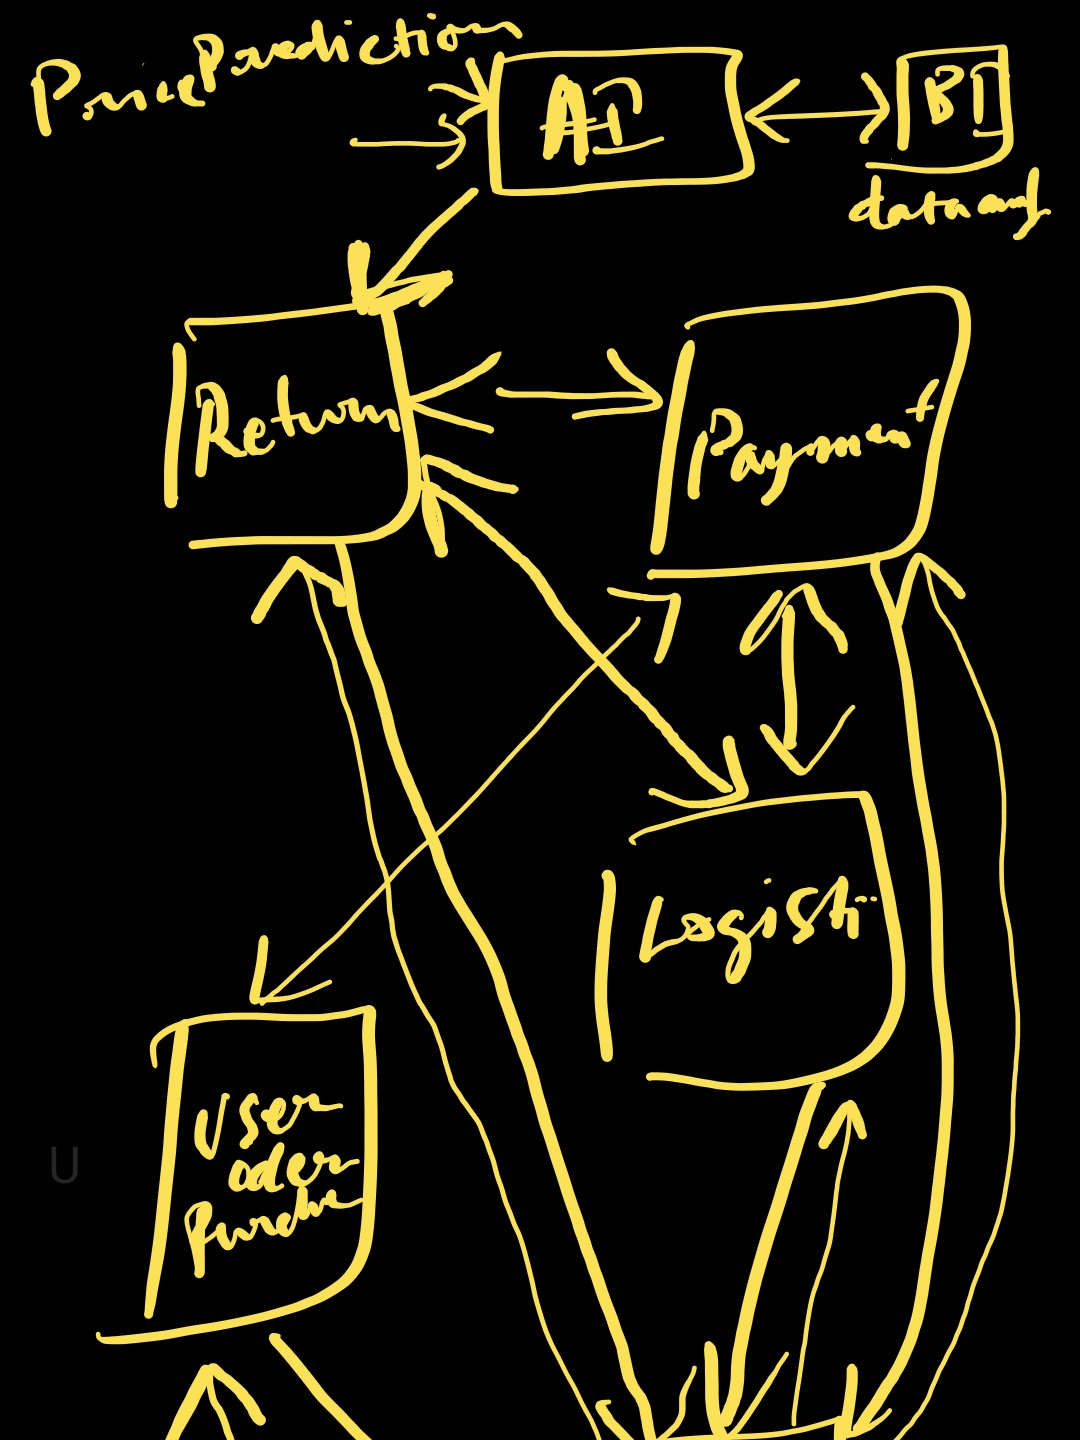 Price Prediction
AI
BI
data and
Return
Payment
Logisti..
User
oder
U